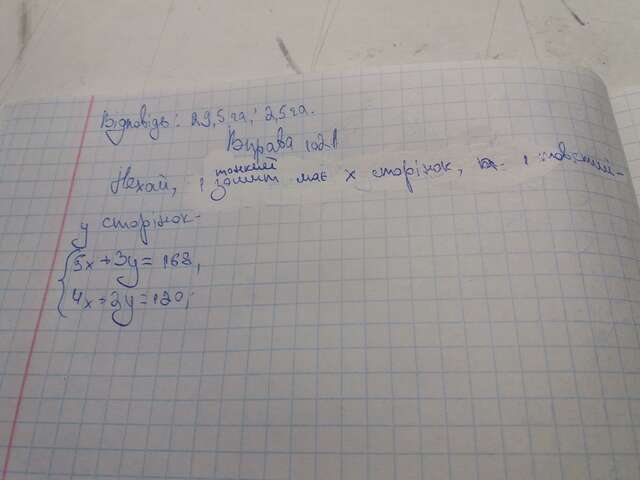 Відповідь: 29,5 га; 2,5 га.
Вправа 1021
Нехай, 1 тонкий зошит має x сторінок, 1
y сторінок.
5x + 3y = 168,
4x + 2y = 120;